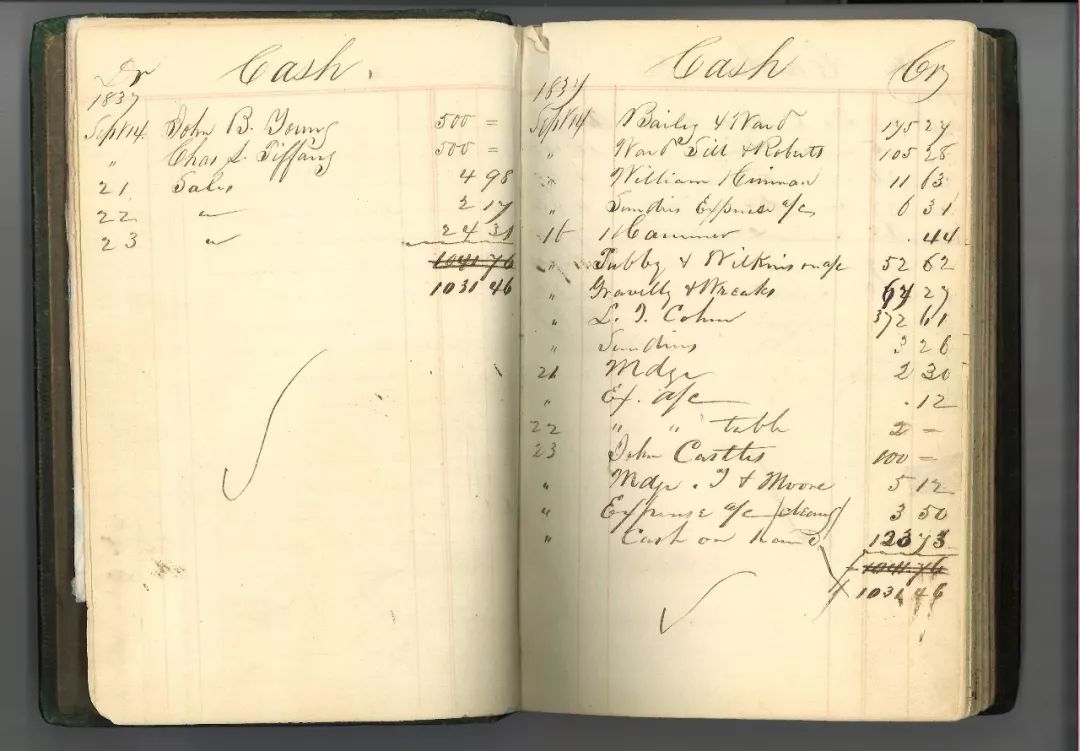 Dr Cash.
1837
Sept 14. John B. Young 500 =
" Chas L. Tiffany 500 =
21 Sales 4 98
22 " 2 17
23 " 24 31
1041 76
1031 46
Cash Cr
1837
Sept 14 Baily & Ward 175 27
" Ward Sill & Roberts 105 28
" William Hinman 11 63
" Sundris Expense a/c 6 31
Hammer . 44
" Tubby & Wilkins on a/c 52 62
" & Wreaks 64 27
" L. J. Cohn 372 61
" Sundries 3 26
21 Mdze 2 30
" Ex. a/c . 12
22 " " table 2 =
23 John Castles 100 =
" Mdze. T & Moore 5 12
" Expense a/c 3 50
" Cash on hand 123 73
1041 76
1031 46